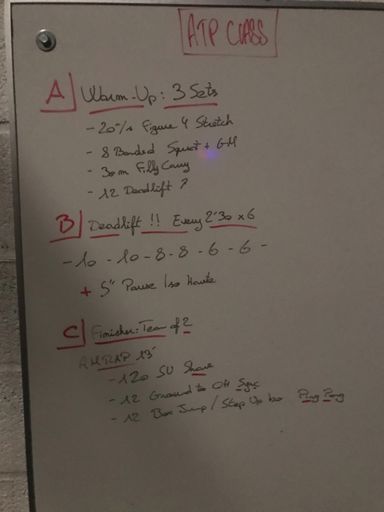 ATP CLASS
A Warm-Up: 3 Sets
- 20"/s Figure 4 Stretch
- 8 Banded Squat + GM
- 30m Filly Carry
- 12 Deadlift ?
B Deadlift !! Every 2'30 x 6
- 10 - 10 - 8 - 8 - 6 - 6 -
+ 5" Pause Iso Haute
C Finisher: Team of 2
AMRAP 13'
- 120 SU Share
- 12 Ground to OH Sync
- 12 Box Jump / Step Up Ping Pong